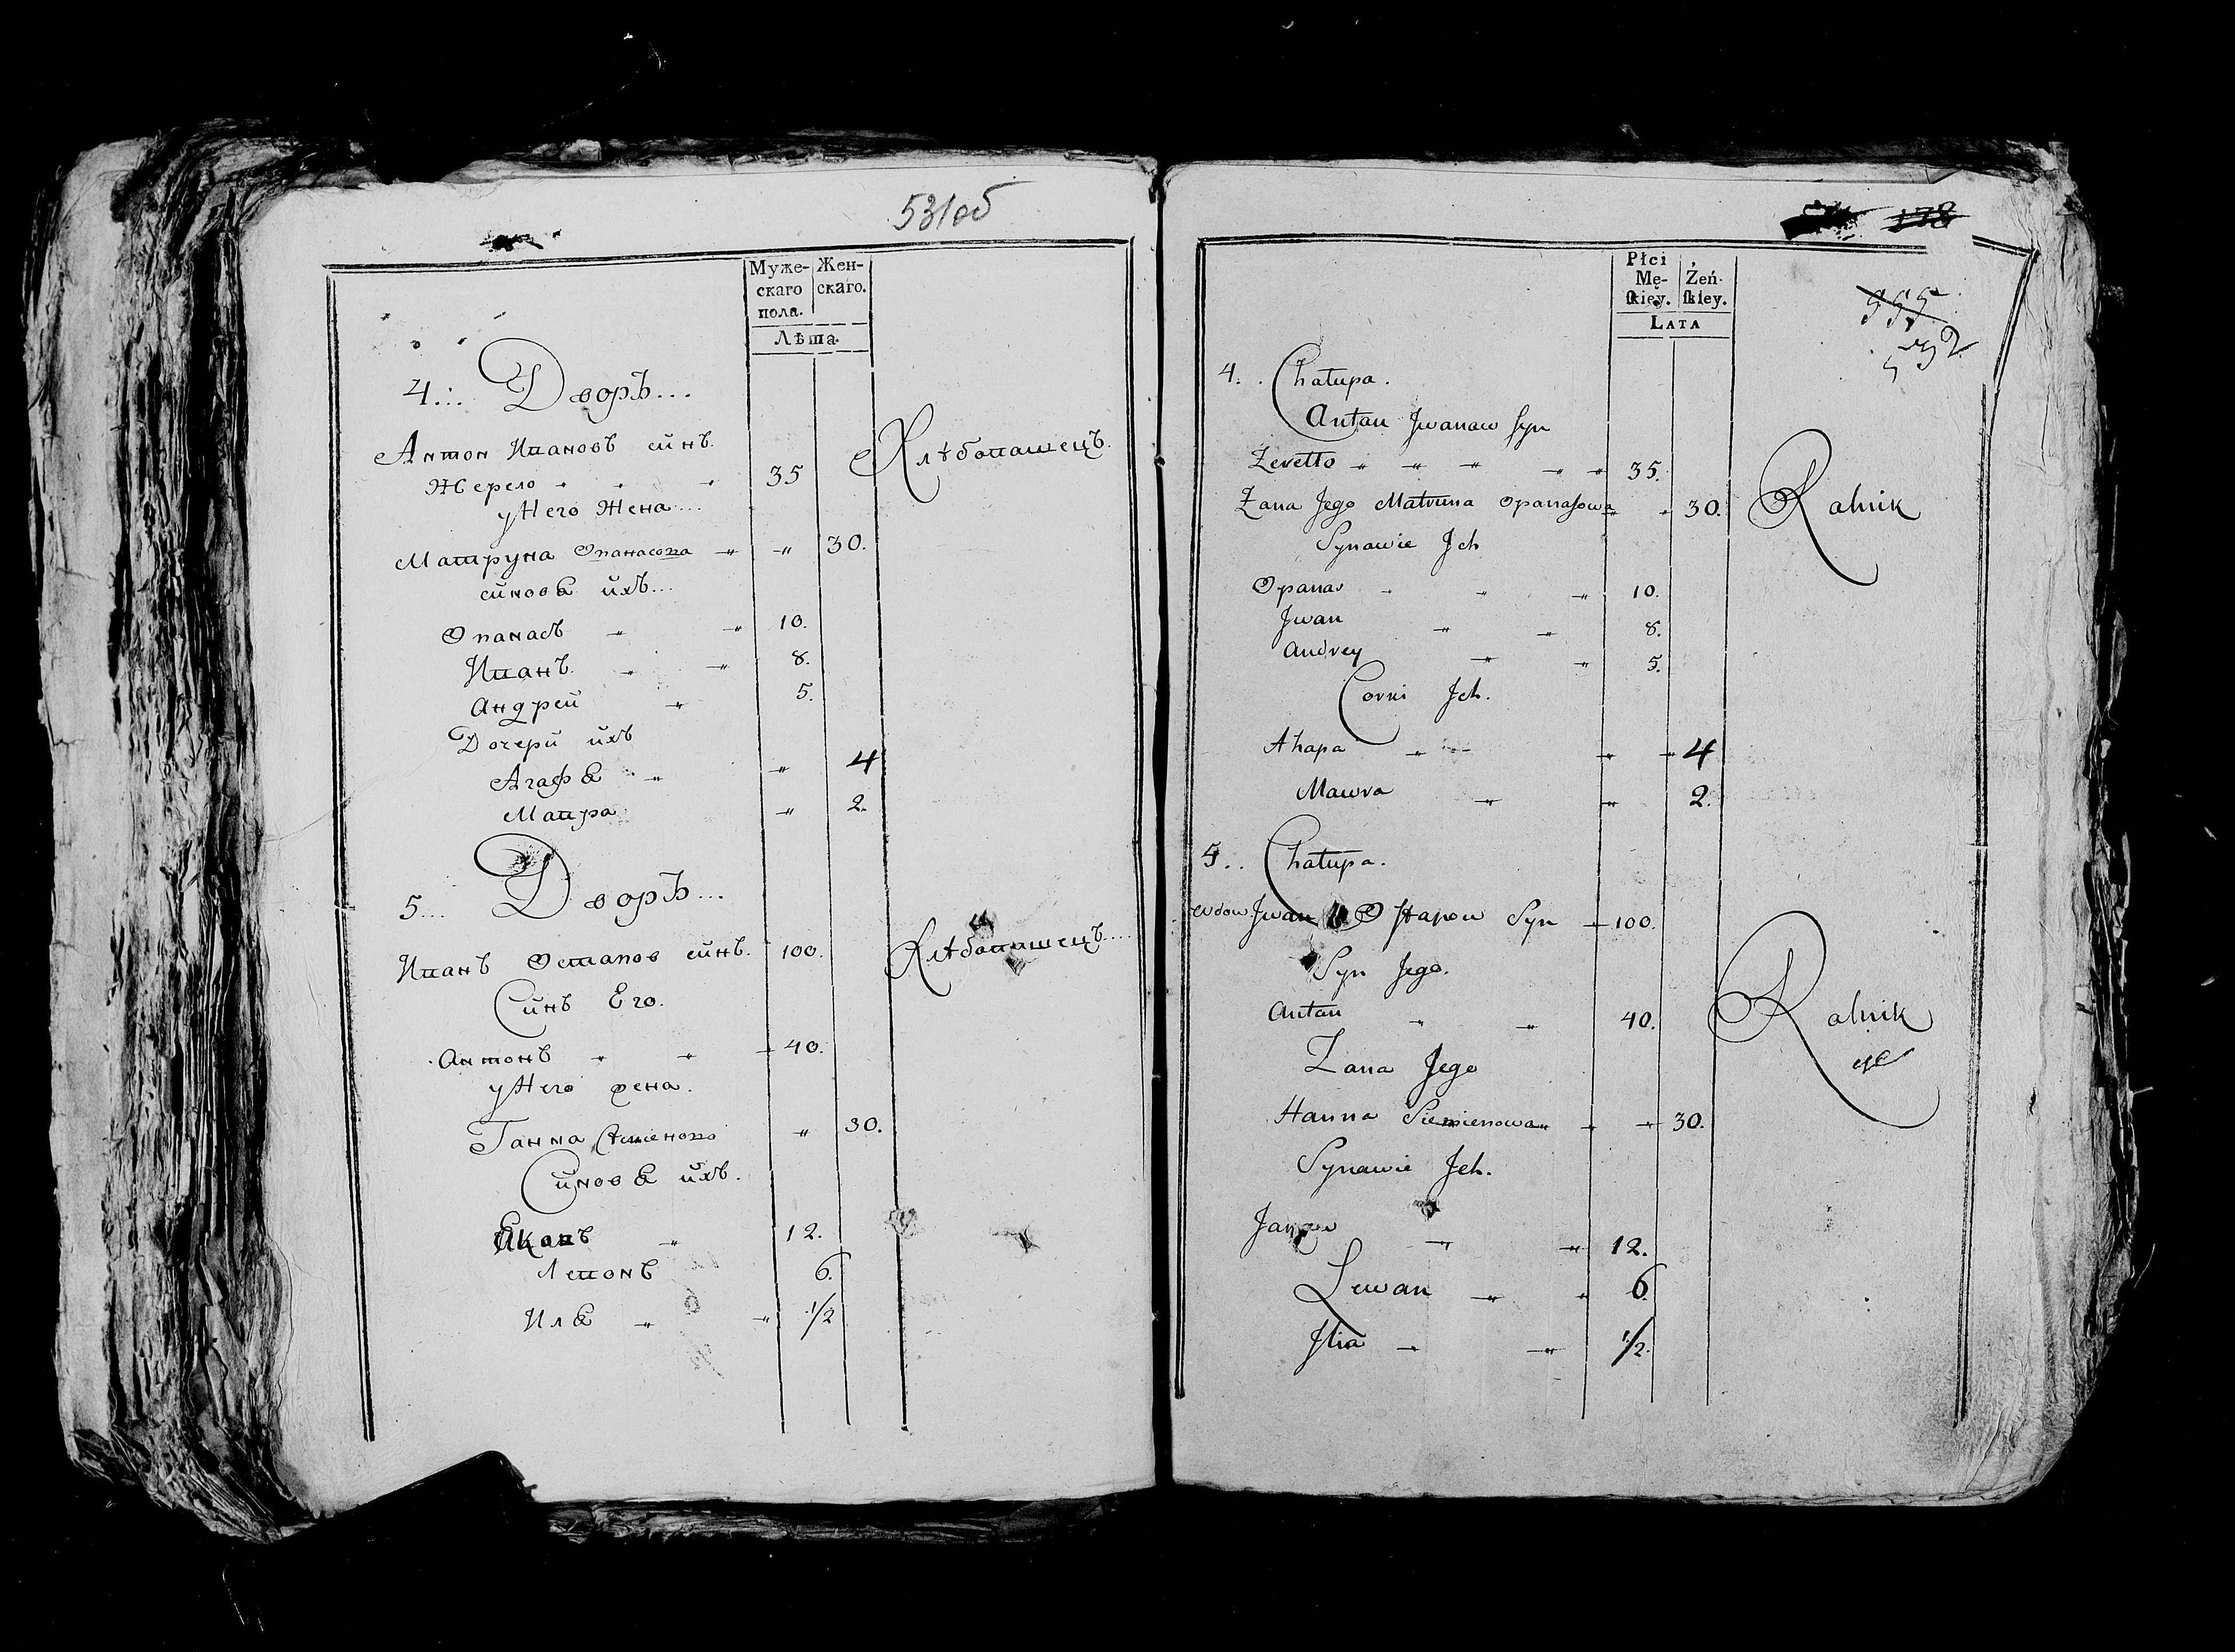 531об
Муже-
скаго
пола.
Жен-
скаго.
Лѣта.
4.:. Дворъ...
Антон Ивановъ синъ.
Жерело 35 Хлѣбопашецъ.
у Него Жена...
Матруна Опанасова 30.
синовѣ ихъ...
Опанасъ 10.
Иванъ 8.
Андрей 5.
Дочери ихъ
Агафѣ 4
Мавра 2.
5... Дворъ...
Иванъ Остапов синъ. 100. Хлѣбопашецъ....
Синъ Его.
Антонъ 40.
у Него жена.
Ганна 30.
Синовѣ ихъ.
12.
Левонъ 6.
Илѣ 1/2
178
Płci
Mę-
ſkiey.
Żeń-
ſkiey.
LATA
955
592
4. . Chałupa.
Antan Jwanaw syn
Żerełło 35.
Żana Jego Matruna Opanasowa 30. Rolnik
Synawie Jch
Opanas 10.
Jwan 8.
Andrey 5.
Corki Jch.
Ahapa 4
Mawra 2.
5. . Chałupa.
wdow Jwan Ostapow Syn 100.
Syn Jego.
Antan 40. Rolnik
Żana Jego
Hanna Siemienowa 30.
Synawie Jch.
12.
Lewan 6.
Jlia 1/2.